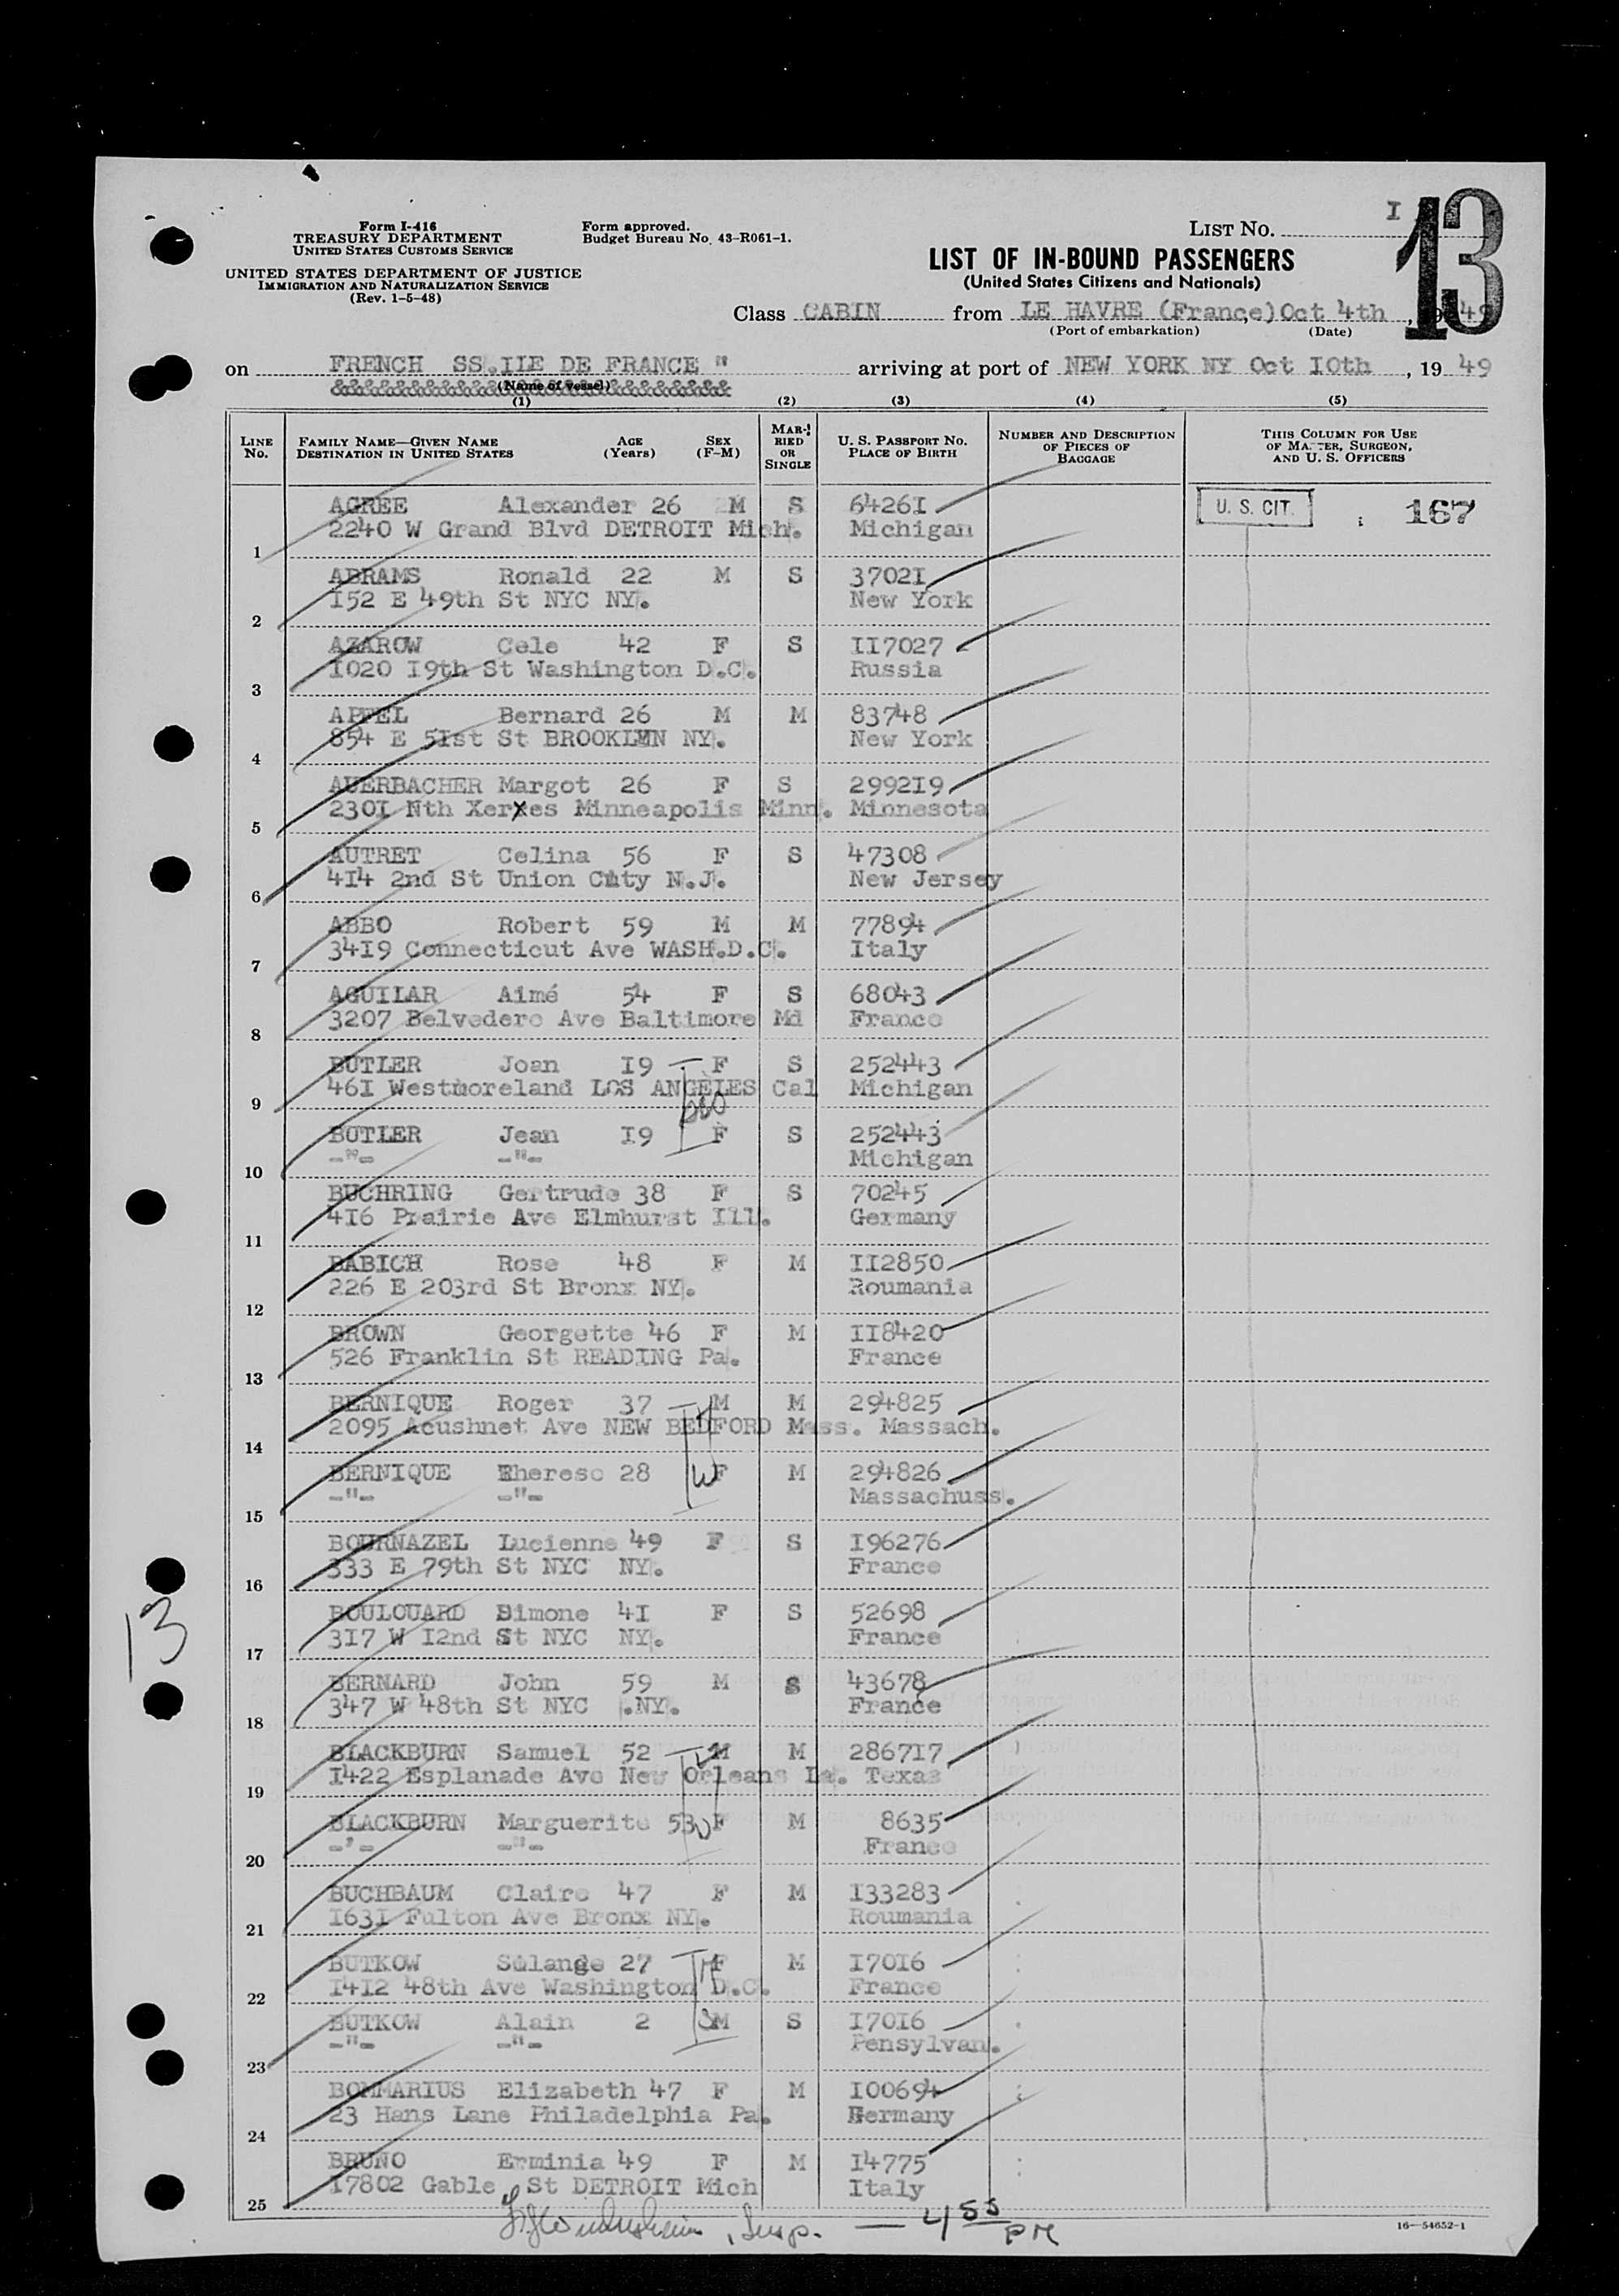 Form I-416
TREASURY DEPARTMENT
UNITED STATES CUSTOMS SERVICE
UNITED STATES DEPARTMENT OF JUSTICE
IMMIGRATION AND NATURALIZATION SERVICE
(Rev. 1-5-48)
Form approved.
Budget Bureau No. 43-R061-1.
LIST NO. I
13
LIST OF IN-BOUND PASSENGERS
(United States Citizens and Nationals)
Class CABIN from LE HAVRE (France) Oct 4th, 1949
(Port of embarkation) (Date)
on FRENCH SS.IIE DE FRANCE " arriving at port of NEW YORK NY Oct I0th, 19 49
(Name of vessel)
(1) (2) (3) (4) (5)
LINE NO. FAMILY NAME—GIVEN NAME DESTINATION IN UNITED STATES AGE (Years) SEX (F-M) MARRIED OR SINGLE U. S. PASSPORT NO. PLACE OF BIRTH NUMBER AND DESCRIPTION OF PIECES OF BAGGAGE THIS COLUMN FOR USE OF MASTER, SURGEON, AND U. S. OFFICERS
AGREE Alexander 26 M S 6426I U. S. CIT. 167
1 2240 W Grand Blvd DETROIT Mich. Michigan
ABRAMS Ronald 22 M S 3702I
2 I52 E 49th St NYC NY. New York
AZAROW Cele 42 F S II7027
3 I020 I9th St Washington D.C. Russia
APPEL Bernard 26 M M 83748
4 854 E 5Ist St BROOKLYN NY. New York
AUERBACHER Margot 26 F S 2992I9
5 230I Nth Xerxes Minneapolis Minn. Minnesota
AUTRET Celina 56 F S 47308
6 4I4 2nd St Union City N.J. New Jersey
ABBO Robert 59 M M 77894
7 34I9 Connecticut Ave WASH.D.C. Italy
AGUILAR Aimé 54 F S 68043
8 3207 Belvedere Ave Baltimore Md France
BUTLER Joan I9 F S 252443
9 46I Westmoreland LOS ANGELES Cal Michigan
BUTLER Jean I9 F S 252443
10 -"- -"- Michigan
BUCHRING Gertrude 38 F S 70245
11 4I6 Prairie Ave Elmhurst Ill. Germany
BABICH Rose 48 F M II2850
12 226 E 203rd St Bronx NY. Roumania
BROWN Georgette 46 F M II8420
13 526 Franklin St READING Pa. France
BERNIQUE Roger 37 M M 294825
14 2095 Acushnet Ave NEW BEDFORD Mass. Massach.
BERNIQUE Therese 28 F M 294826
15 -"- -"- Massachuss.
BOURNAZEL Lucienne 49 F S I96276
16 333 E 79th St NYC NY. France
BOULOUARD Simone 4I F S 52698
17 3I7 W I2nd St NYC NY. France
BERNARD John 59 M S 43678
18 347 W 48th St NYC .NY. France
BLACKBURN Samuel 52 M M 286717
19 I422 Esplanade Ave New Orleans La. Texas
BLACKBURN Marguerite 53 F M 8635
20 -"- -"- France
BUCHBAUM Claire 47 F M I33283
21 I63I Fulton Ave Bronx NY. Roumania
BUTKOW Solange 27 F M I70I6
22 I4I2 48th Ave Washington D.C. France
BUTKOW Alain 2 M S I70I6
23 -"- -"- Pensylvan.
BOMMARIUS Elizabeth 47 F M I00694
24 23 Hans Lane Philadelphia Pa. Germany
BRUNO Erminia 49 F M I4775
25 I7802 Gable St DETROIT Mich Italy
13
Insp. — 4 55 PM
16—54652-1